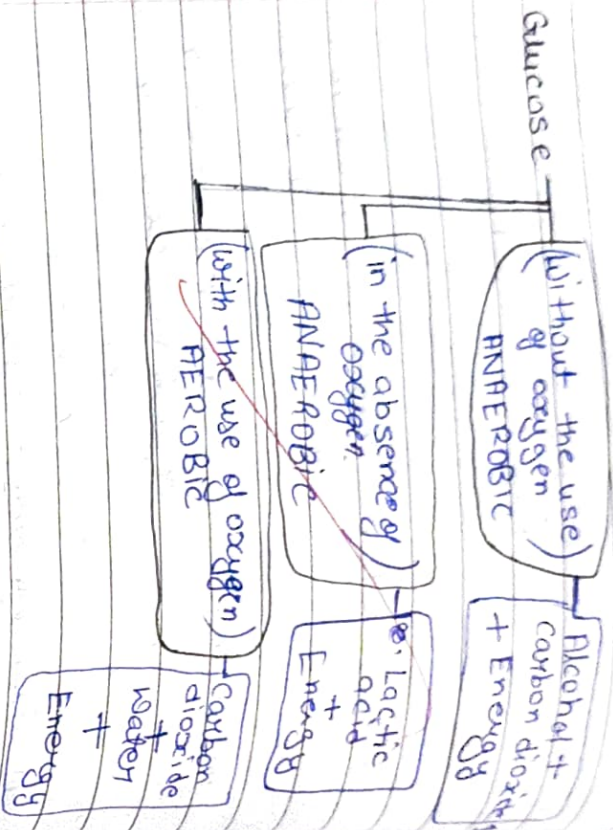 Glucose
(Without the use)
of oxygen
ANAEROBIC
Alcohol +
carbon dioxide
+ Energy
(in the absence of)
oxygen.
ANAEROBIC
Lactic
acid
+
Energy
(with the use of oxygen)
AEROBIC
Carbon
dioxide
+
Water
+
Energy